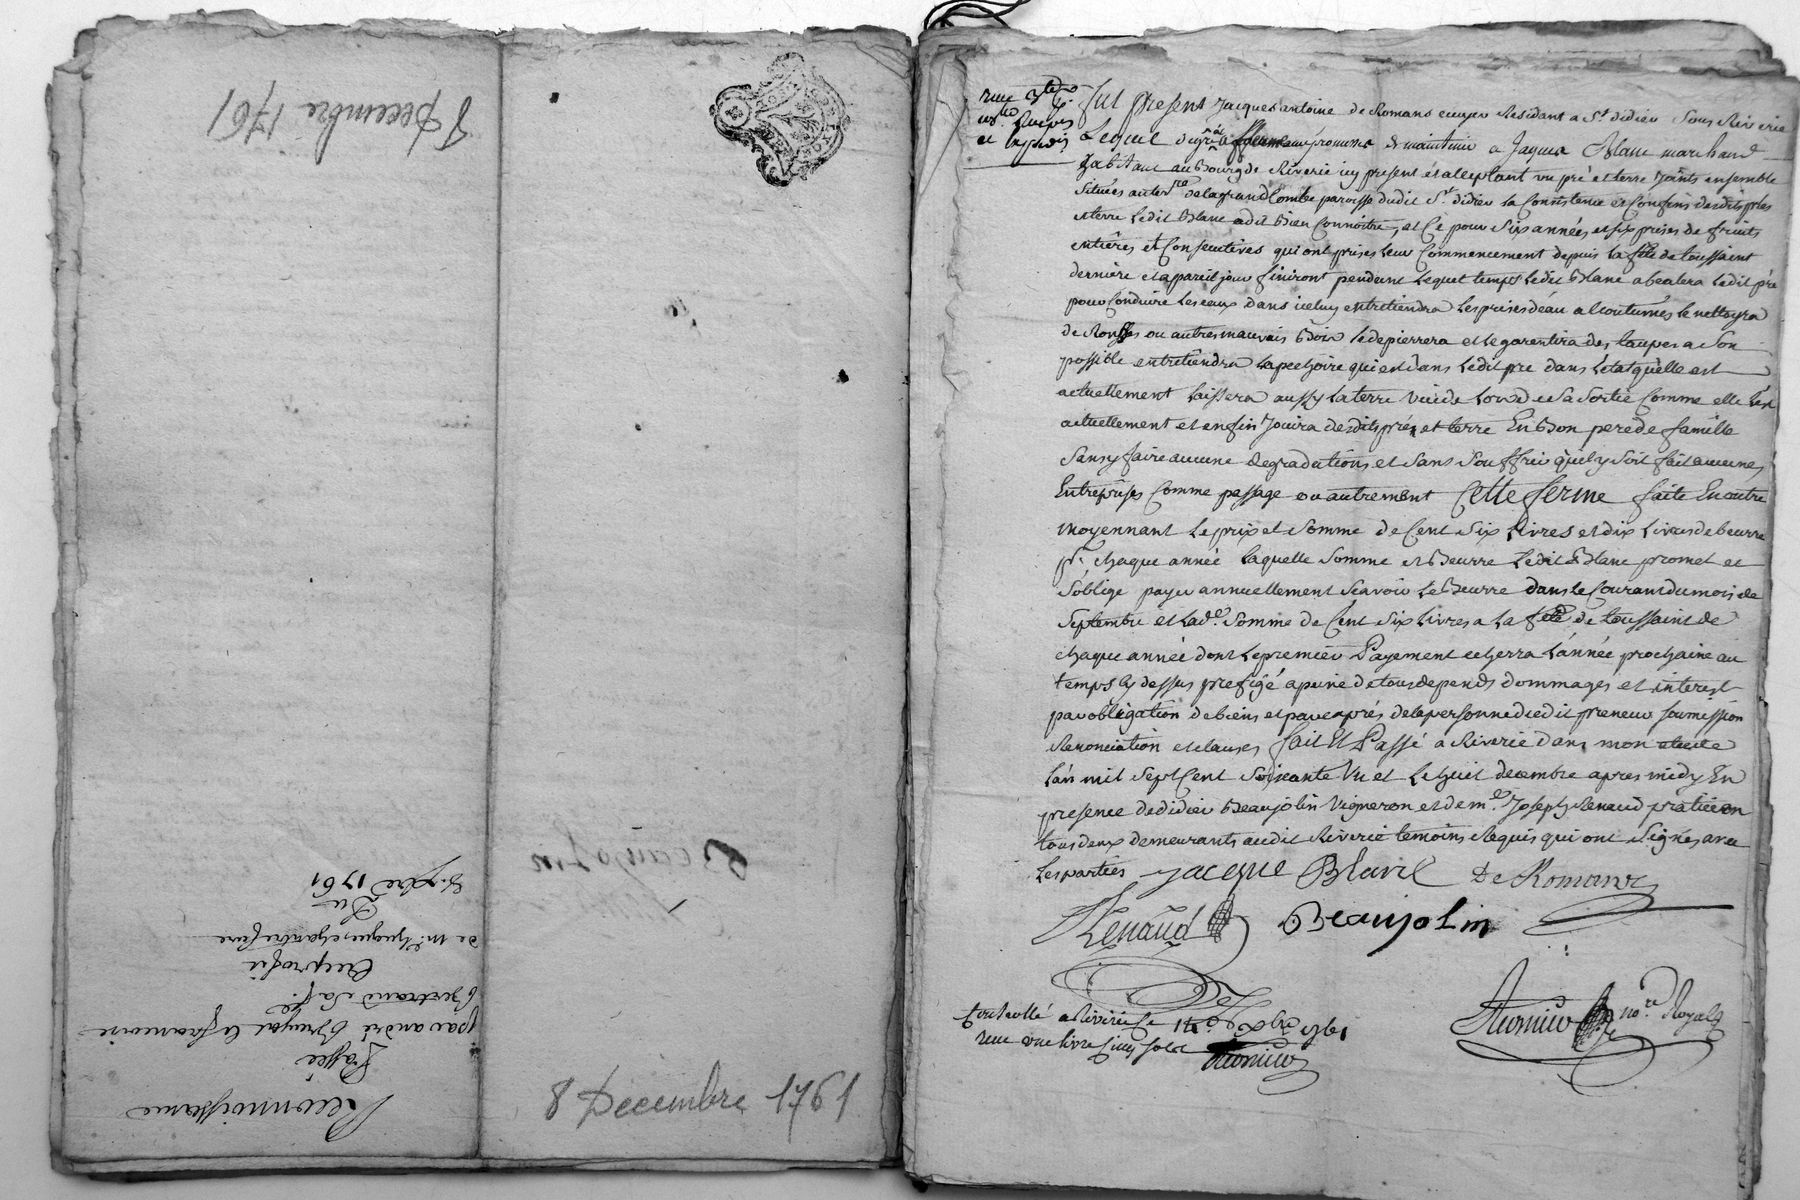 8 Decembre 1761
Reconnoissance
Passée
par andré
Bertrand
Au profit
de
Du
8. Xbre 1761
8 Decembre 1761
Fut present Jacques antoine de Romans ecuyer Residant a St. didier sous Riverie
Lequel de gré afferme avec promesse de maintenir a Jaques Blanc marchand
habitant au Bourg de Riverie icy present et acceptant un pré et terre joints ensemble
situées au terre. de la grand Combe paroisse dudit St. didier la Consistence et Confins desdits prés
et terre Ledit Blanc a dit Bien Connoitre, et Ce pour Six années et six prises de fruits
entières et Consecutives qui ont prises leur Commencement depuis la fête de toussaint
dernière et a pareil jour finiront pendant Lequel temps Ledit Blanc abealera Ledit pré
pour Conduire Les eaux dans iceluy entretiendra Les prises déau accoutumés le nettoyra
de Ronsses ou autres mauvais Bois Le depierrera et Le garentira des taupes a Son
possible entretiendra La pechoire qui est dans Ledit pré dans L'état qu'elle est
actuellement Laissera aussy La terre vuide Lors de sa Sortie Comme elle L'est
actuellement et enfin Jouira desdits prés et terre En Bon pere de famille
Sans y faire aucune degradations et Sans Souffrir qu'il y Soit fait aucunes
Entreprises Comme passage ou autrement Cette ferme faite En outre
moyennant Le prix et Somme de Cent Six Livres et dix Livres de beurre
pr. chaque année Laquelle Somme et Beurre Ledit Blanc promet et
S'oblige payer annuellement Scavoir Le Beurre dans Le Courant du mois de
Septembre et Lade. Somme de Cent Six Livres a La fête de toussaint de
chaque année dont Le premier Payement echerra L'année prochaine au
temps Cy dessus prefigé a peine de tous depends dommages et interest
par obligation de biens et par exprés de la personne dudit preneur soumission
Renonciation et clauses fait Et Passé a Riverie dans mon etude
L'an mil Sept Cent Soixante Un et Le huit decembre apres midy En
presence de didier Beaujolin Vigneron et de me. Joseph Renaud praticien
tous deux demeurants audit Riverie temoins Requis qui ont Signés avec
Les parties Jacque Blanc De Romans
Renaud Beaujolin
nore. Royal
Controllé a Riverie Le 14e Xbre 1761
reçu une livre cinq sols